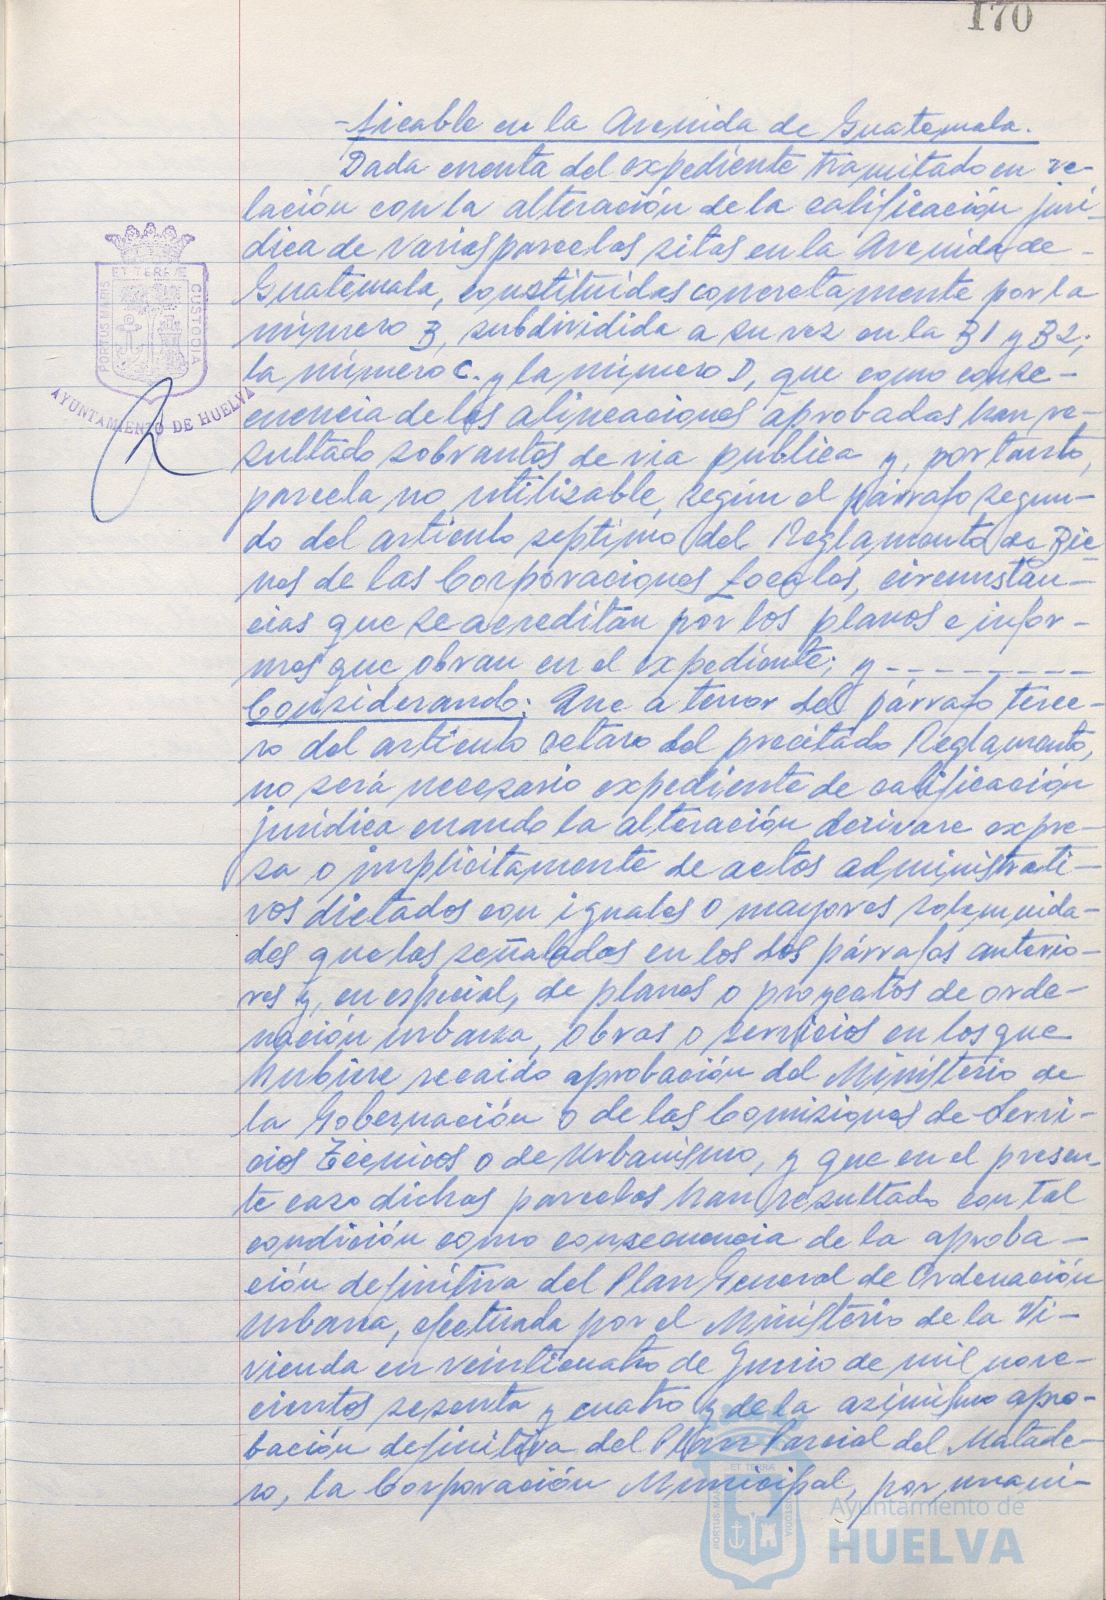 170
-ficable en la Avenida de Guatemala.
Dada cuenta del expediente tramitado en re-
lación con la alteración de la calificación jurí-
dica de varias parcelas sitas en la Avenida de -
Guatemala, constituidas concretamente por la
número B, subdividida a su vez en la B1 y B2;
la número C. y la número D, que como conse-
cuencia de las alineaciones aprobadas han re-
sultado sobrantes de via publica y, por tanto,
parcela no utilizable, según el párrafo segun-
do del articulo septimo del Reglamento de Bie
nes de las Corporaciones Locales, circunstan-
cias que se acreditan por los planos e infor-
mes que obran en el expediente; y - - - - - - - - -
Considerando: Que a tenor del párrafo terce-
ro del articulo octavo del precitado Reglamento,
no será necesario expediente de calificación
jurídica cuando la alteración derivare expre-
sa o implicitamente de actos administrati-
vos dictados con iguales o mayores solemnida-
des que las señaladas en los dos párrafos anterio-
res y, en especial, de planes o proyectos de orde-
nación urbana, obras o servicios en los que
hubiere recaido aprobación del Ministerio de
la Gobernación o de las Comisiones de Servi-
cios Técnicos o de Urbanismo, y que en el presen-
te caso dichas parcelas han resultado con tal
condición como consecuencia de la aproba-
ción definitiva del Plan General de Ordenación
Urbana, efectuada por el Ministerio de la Vi-
vienda en veinticuatro de Junio de mil nove-
cientos sesenta y cuatro y de la asimismo apro-
bación definitiva del Plan Parcial del Matade-
ro, la Corporación Municipal, por unani-
ET TERRÆ
PORTUS MARIS
CUSTODIA
AYUNTAMIENTO DE HUELVA
ET TERRÆ
PORTUS MARIS
CUSTODIA
Ayuntamiento de
HUELVA